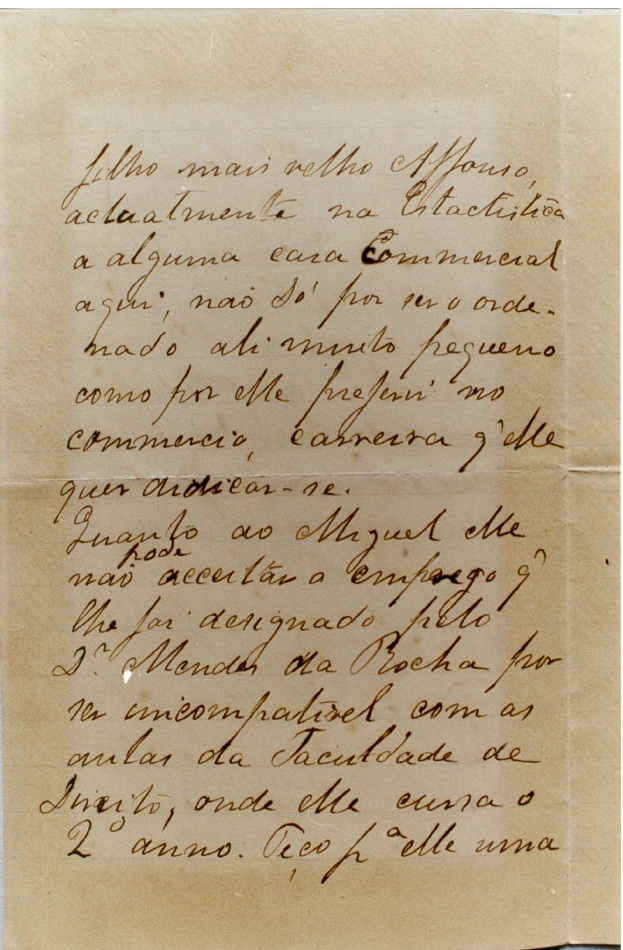 filho mais velho Affonso,
actualmente na Estactistica
a alguma casa Commercial
aqui, não só por ser o orde-
nado ali muito pequeno
como por elle preferir no
commercio, carreira q' elle
quer didicar-se.
Quanto ao Miguel elle
não pode acceitar o emprego q'
lhe foi designado pelo
Dr. Mendes da Rocha por
ser incompativel com as
aulas da Faculdade de
Direito, onde elle cursa o
2º anno. Peço pª elle uma